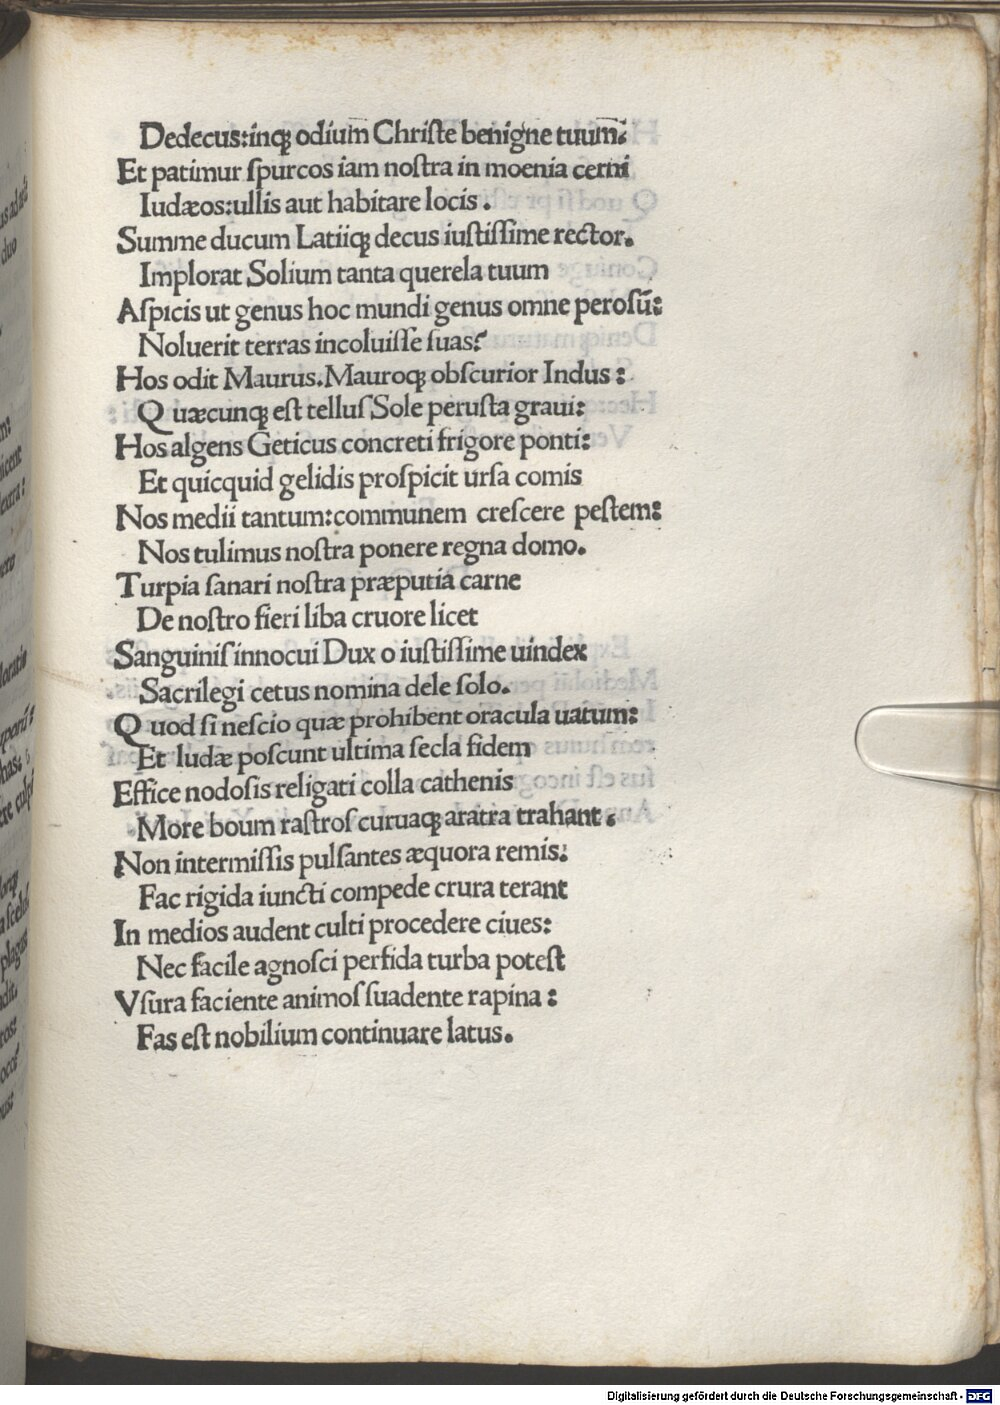 Dedecus:inqꝫ odium Chriſte benigne tuum?
Et patimur ſpurcos iam noſtra in moenia cerni
Iudæos:ullis aut habitare locis.
Summe ducum Latiiqꝫ decus iuſtiſſime rector.
Implorat Solium tanta querela tuum
Aſpicis ut genus hoc mundi genus omne peroſū:
Noluerit terras incoluiſſe ſuas?
Hos odit Maurus.Mauroqꝫ obſcurior Indus:
Quæcunqꝫ eſt telluſ Sole peruſta graui:
Hos algens Geticus concreti frigore ponti:
Et quicquid gelidis proſpicit urſa comis
Nos medii tantum:communem creſcere peſtem:
Nos tulimus noſtra ponere regna domo.
Turpia ſanari noſtra præputia carne
De noſtro fieri liba cruore licet
Sanguiniſ innocui Dux o iuſtiſſime uindex
Sacrilegi cetus nomina dele ſolo.
Quod ſi neſcio quæ prohibent oracula uatum:
Et Iudæ poſcunt ultima ſecla fidem
Effice nodoſis religati colla cathenis
More boum raſtroſ curuaqꝫ aratra trahant.
Non intermiſſis pulſantes æquora remis:
Fac rigida iuncti compede crura terant
In medios audent culti procedere ciues:
Nec facile agnoſci perfida turba poteſt
Vſura faciente animoſ ſuadente rapina:
Fas eſt nobilium continuare latus.
Digitalisierung gefördert durch die Deutsche Forschungsgemeinschaft - DFG